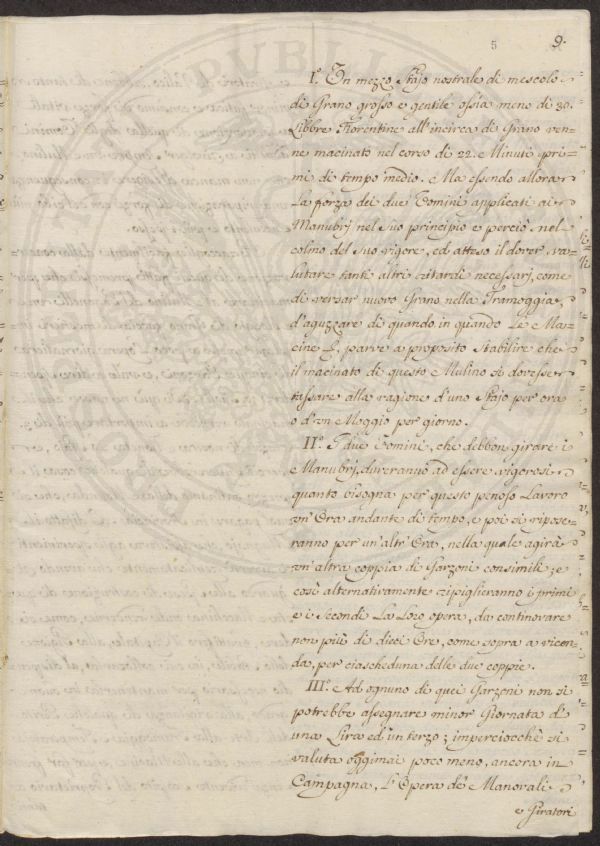 5 9.
I.º Un mezzo Stajo nostrale di mescolo
di Grano grosso e gentile ossia meno di 30.
Libbre Fiorentine all'incirca di Grano ven=
ne macinato nel corso di 22. Minuti pri=
mi di tempo medio. Ma essendo allora
La forza dei due Uomini applicati ai
Manubrj nel suo principio e perciò nel
colmo del suo vigore, ed atteso il dover va=
lutare tanti altri ritardi necessarj, come
di versar nuovo Grano nella Tramoggia,
d'aguzzare di quando in quando Le Ma=
cine &, parve a proposito stabilire che
il macinato di questo Mulino si dovesse
tassare alla ragione d'uno Stajo per ora
o d'un Moggio per giorno.
II.º I due Uomini, che debbon girare i
Manubrj, dureranno ad essere vigorosi
quanto bisogna per questo penoso Lavoro
un' Ora andante di tempo, e poi si ripose=
ranno per un'altr'Ora, nella quale agirà
un'altra coppia di Garzoni consimile; e
così alternativamente ripiglieranno i primi
e i secondi La Loro opera, da continovare
non più di dieci Ore, come sopra a vicen=
da, per ciascheduna delle due coppie.
III.º Ad ognuno di quei Garzoni non si
potrebbe assegnare minor Giornata d'
una Lira ed un terzo; imperciocchè si
valuta oggimai poco meno, ancora in
Campagna, L'Opera de' Manovali
e Giratori